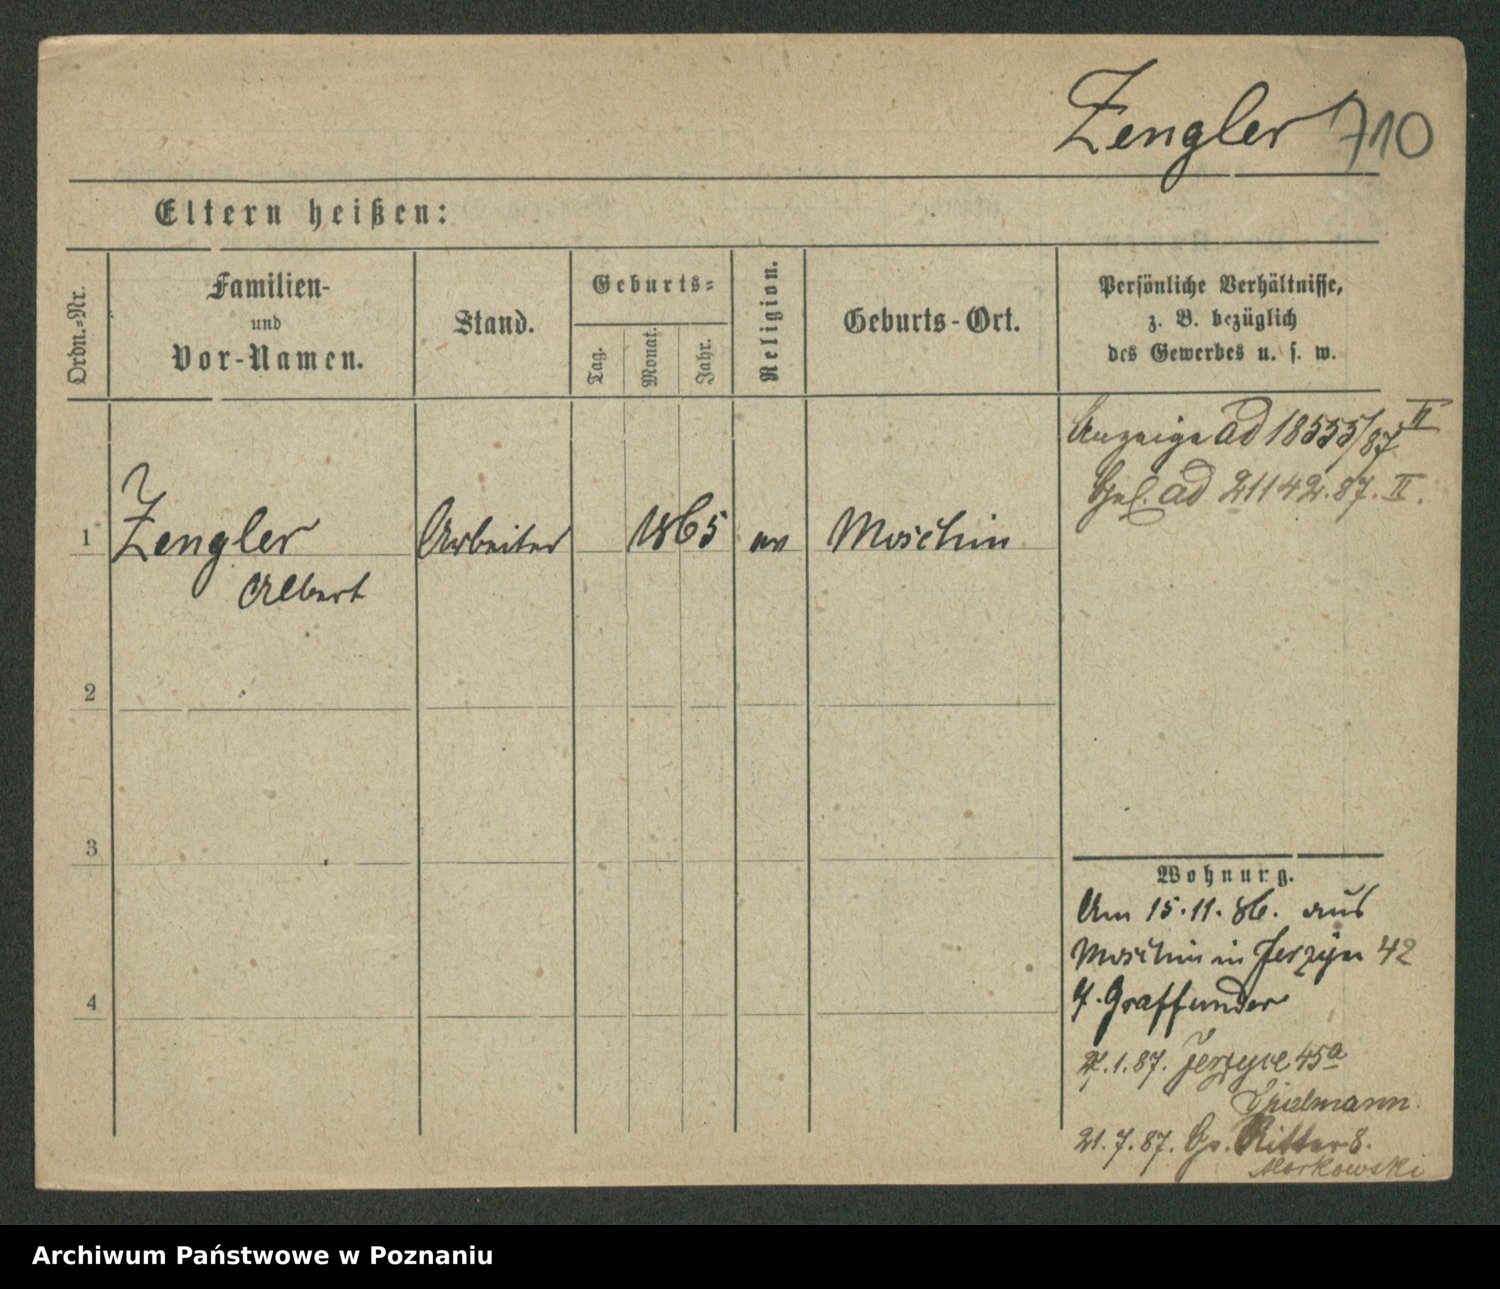 Zengler 710
Eltern heißen:
Ordn.=Nr.
Familien-
und
Vor-Namen.
Stand.
Geburts=
Tag.
Monat.
Jahr.
Religion.
Geburts-Ort.
Persönliche Verhältnisse,
z. B. bezüglich
des Gewerbes u. s. w.
Anzeige ad 18555/87 II
ad 21142.87. II.
1 Zengler Arbeiter 1865 ev Moschin
Albert
2
3
4
Wohnung.
Am 15.11.86. aus
Moschin in Jerzyce 42
Graffunder
27.1.87. Jerzyce 45a
21.7.87. Gr. Ritter 8.
Morkowski
Archiwum Państwowe w Poznaniu